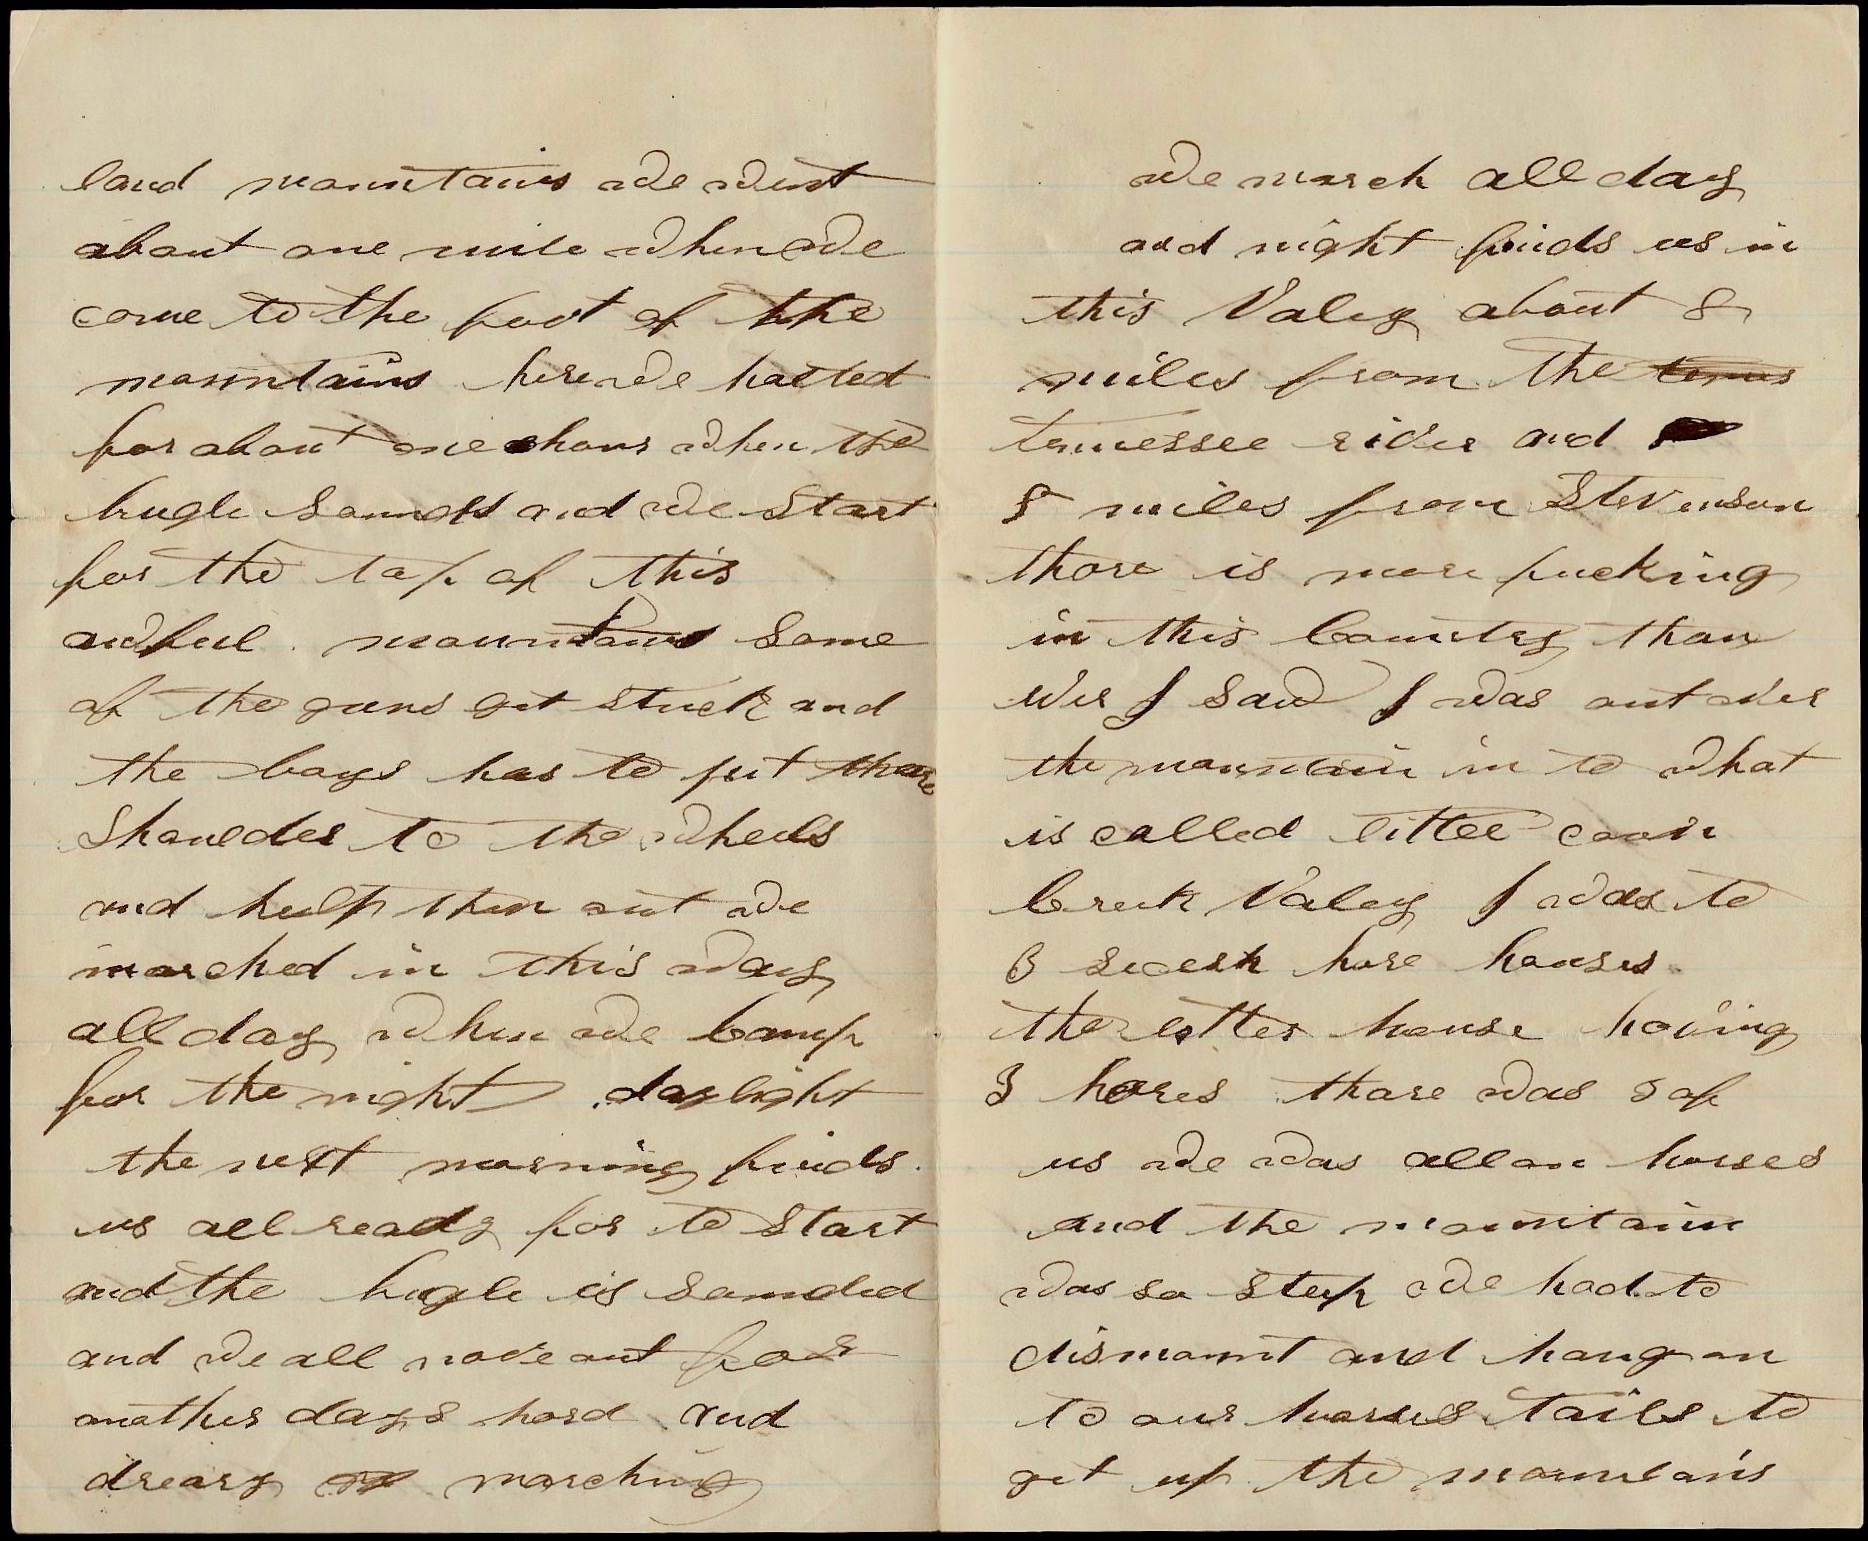 land mountains we went
about one mile when we
come to the foot of the
mountains here we halted
for about one hour when the
bugle sounds and we start
for the top of this
awful mountains some
of the guns get stuck and
the boys has to put thare
shoulder to the wheels
and help then out we
marched in this way
all day when we Camp
for the night daylight
the next morning finds
us all ready for to start
and the bugle is sounded
and we all move out for
another days hard and
dreary marching
we march all day
and night finds us in
this Valey about 8
miles from the
tennessee river and
8 miles from Stevenson
thare is more fucking
in this Country than
ever I saw I was out over
the mountain in to what
is called little coon
Creek Valey I was to
3 secesh hore houses
the otter house having
3 hores thare was 5 of
us we was all on horses
and the mountain
was so steep we had to
dismount and hang on
to our horses tails to
get up the mountains